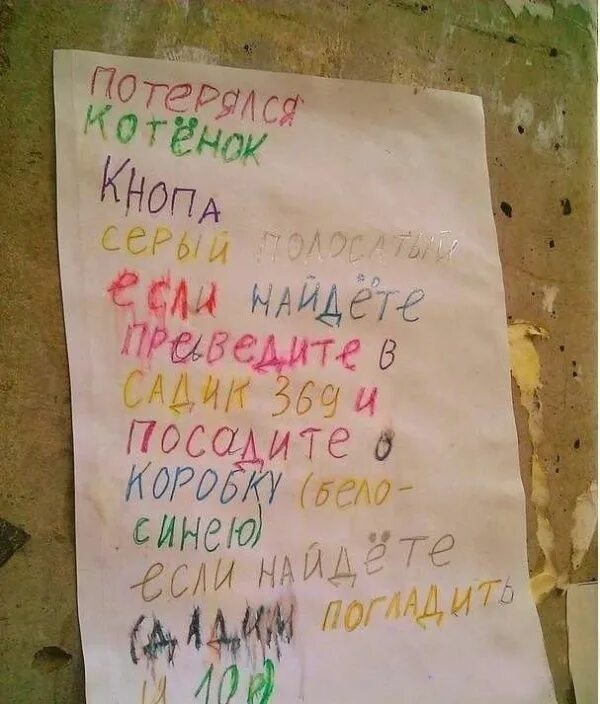 ПОТЕРЯЛСЯ
КОТЁНОК
КНОПА
СЕРЫЙ ПОЛОСАТЫЙ
если НАЙДЁТЕ
ПРеВеДИТе В
САДИК 369 и
ПОСАДИТе
КОРОБКУ (бело-
синею)
если НАЙДЁТЕ
ДАДИМ ПОГЛАДИТЬ
и 10р)